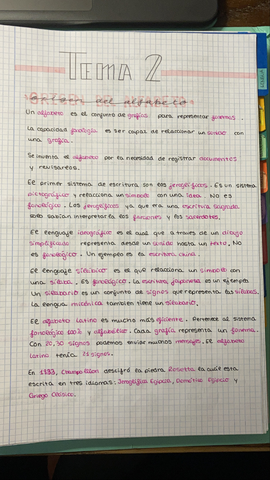 TEMA 2
Origen del alfabeto
Un alfabeto es el conjunto de grafías para representar fonemas.
La capacidad fonológica es ser capaz de relacionar un sonido con
una grafía.
Se inventa el alfabeto por la necesidad de registrar documentos
y revisarlos.
El primer sistema de escritura son los jeroglíficos. Es un sistema
pictográfico y relaciona un símbolo con una idea. No es
fonológico. Los jeroglíficos ya que era una escritura sagrada
solo sabían interpretarlos los faraones y los sacerdotes.
El lenguaje ideográfico es el cual que a través de un dibujo
simplificado representa desde un sonido hasta un texto. No
es fonológico. Un ejemplo es la escritura china.
El lenguaje silábico es el que relaciona un símbolo con
una sílaba. Es fonológico. La escritura japonesa es un ejemplo.
Un silabario es un conjunto de signos que representa las sílabas.
La lengua micénica también tiene un silabario.
El alfabeto latino es mucho más eficiente. Pertenece al sistema
fonológico y alfabético. Cada grafía representa un fonema.
Con 20, 30 signos podemos enviar muchos mensajes. El alfabeto
latino tenía 21 signos.
En Champollion descifró la piedra Rosetta la cual esta
escrita en tres idiomas: Jeroglífico Egipcio, Demótico Egipcio y
Griego Clásico.